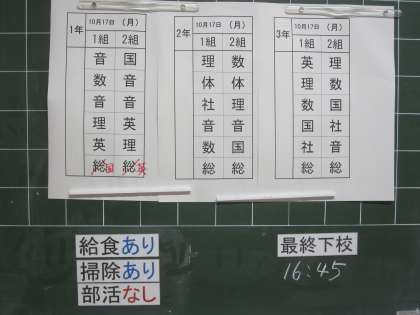 1年 10月17日 (月)
1組 2組
音 国
数 音
音 音
理 英
英 理
総 国 総 英
2年 10月17日 (月)
1組 2組
理 数
体 体
社 理
音 音
数 国
総 総
3年 10月17日 (月)
1組 2組
英 理
理 数
数 国
国 社
社 音
総 総
給食あり
掃除あり
部活なし
最終下校
16:45